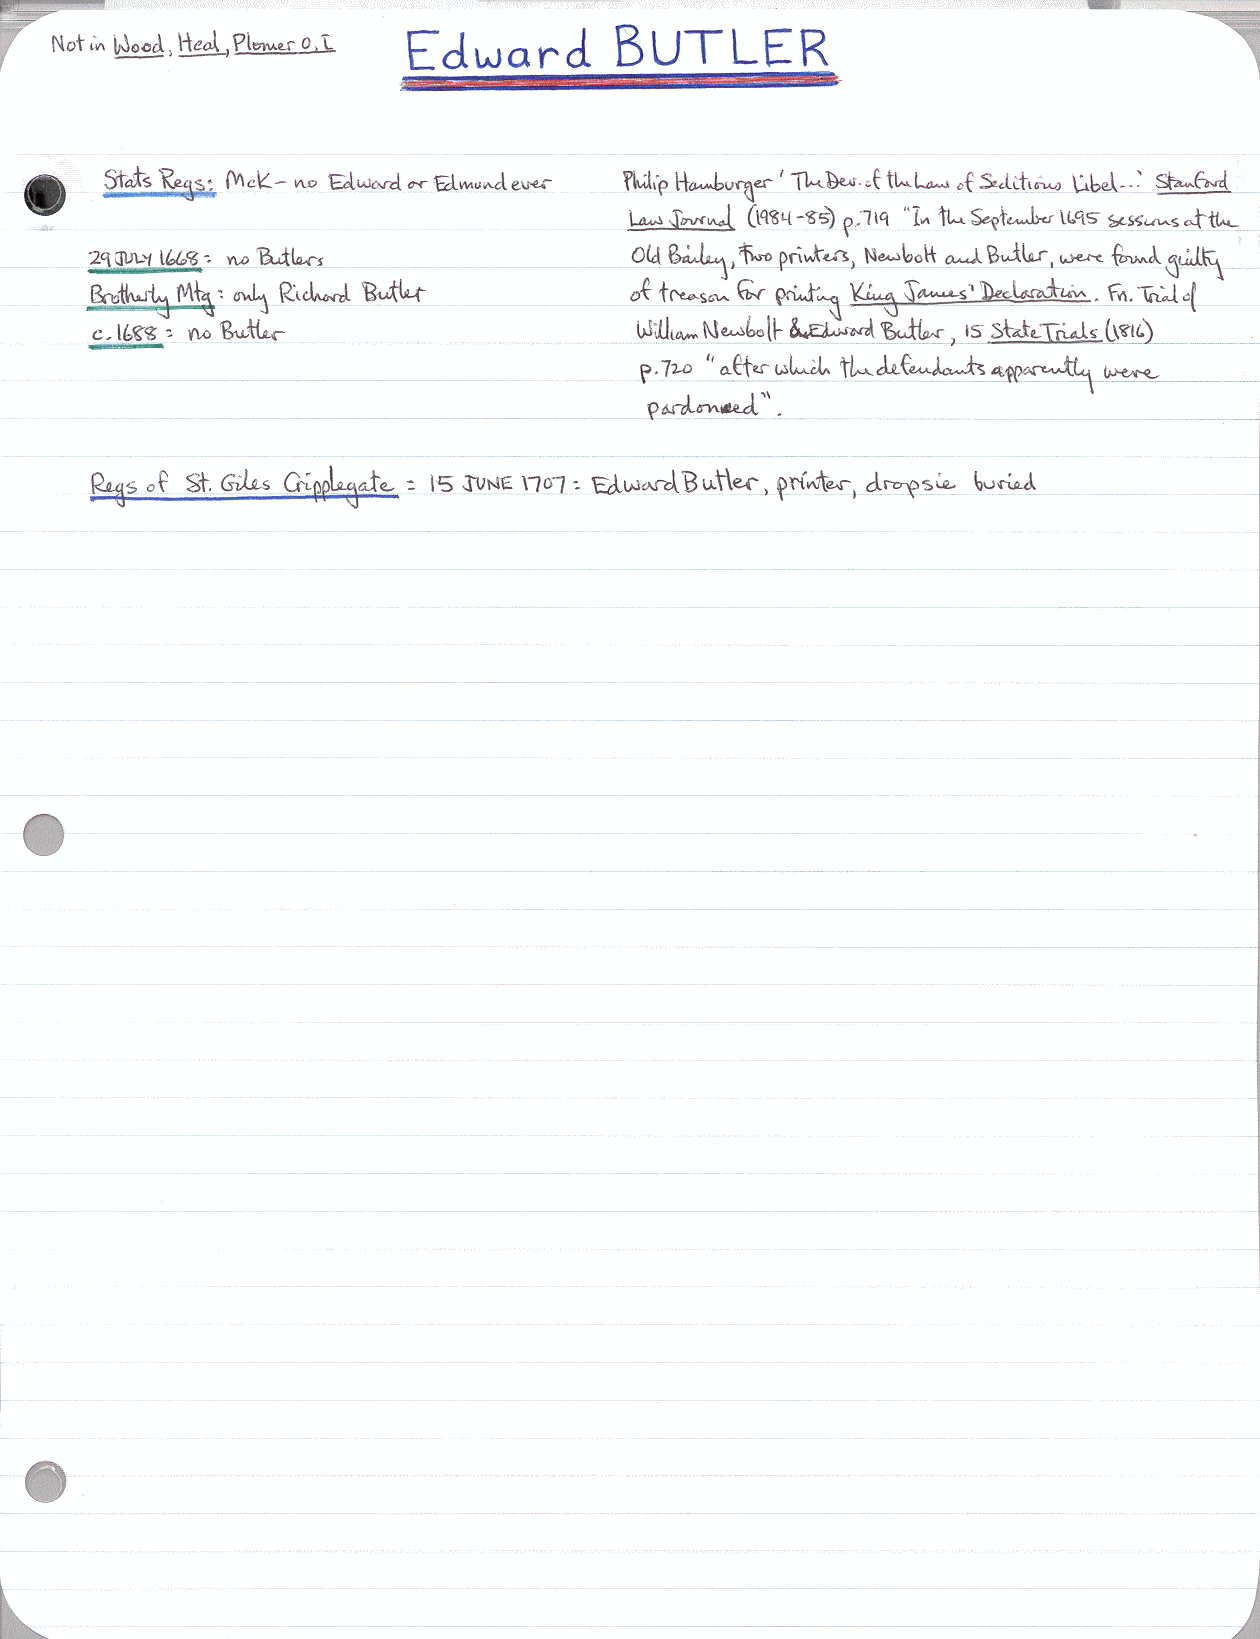 Not in Wood, Heal, Plomer 0, I
Edward BUTLER
Stats Regs: McK – no Edward or Edmund ever
29 JULY 1668: no Butlers
Brotherly Mtg: only Richard Butler
c.1688: no Butler
Philip Hamburger 'The Dev. of the Law of Seditious Libel...' Stanford
Law Journal (1984-85) p.719 "In the September 1695 sessions at the
Old Bailey, two printers, Newbolt and Butler, were found guilty
of treason for printing King James' Declaration. Fn. Trial of
William Newbolt & Edward Butler, 15 State Trials (1816)
p.720 "after which the defendants apparently were
pardoned".
Regs of St. Giles Cripplegate = 15 JUNE 1707: Edward Butler, printer, dropsie buried